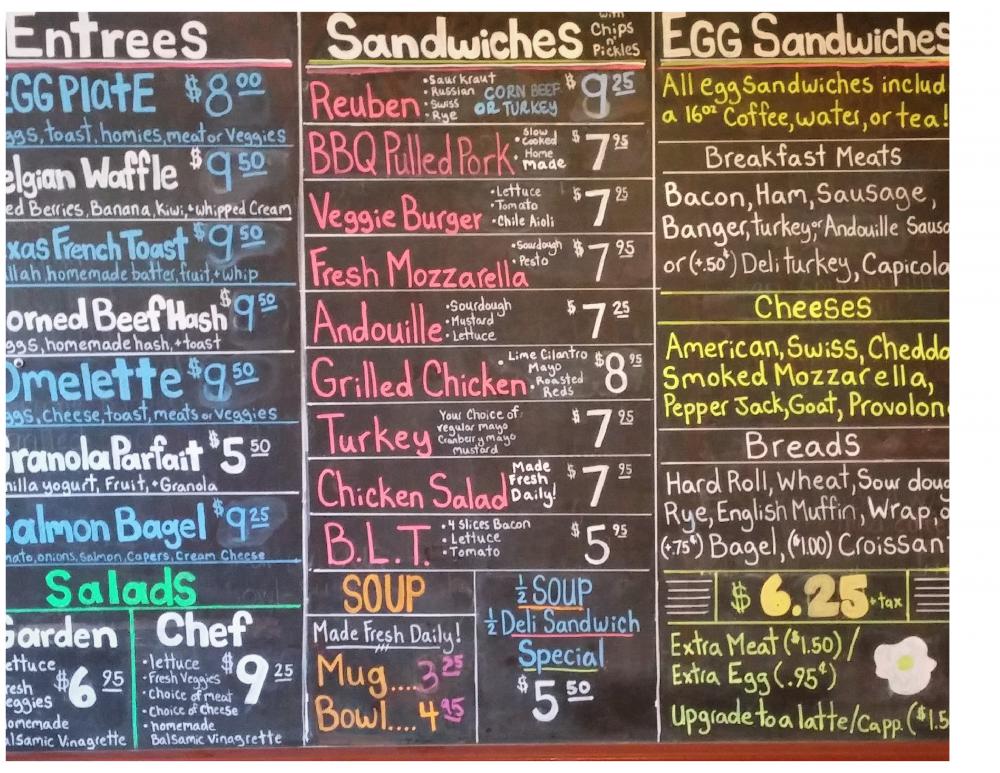 Entrees
EGG PlatE $8.00
eggs, toast, homies, meat or Veggies
elgian Waffle $9.50
ed Berries, Banana, Kiwi, + whipped Cream
xas French Toast $9.50
llah, homemade batter, fruit, + whip
orned Beef Hash $9.50
ggs, homemade hash, + toast
Omelette $9.50
ggs, Cheese, toast, meats or veggies
Granola Parfait $5.50
nilla yogurt, Fruit, + Granola
Salmon Bagel $9.25
mato, onions, Salmon, Capers, Cream Cheese
Salads
Garden
ettuce
resh
eggies
$6.95
omemade
alsamic Vinagrette
Chef
• lettuce
• Fresh Veggies
• choice of meat
• choice of Cheese
• homemade
Balsamic Vinagrette
$9.25
Sandwiches with Chips n' Pickles
Reuben • Saurkraut • Russian • Swiss • Rye CORN BEEF OR TURKEY $9.25
BBQ Pulled Pork • Slow Cooked • Home made $7.95
Veggie Burger • Lettuce • Tomato • Chile Aioli $7.25
Fresh Mozzarella • Sourdough • Pesto $7.95
Andouille • Sourdough • Mustard • Lettuce $7.25
Grilled Chicken • Lime Cilantro Mayo • Roasted Reds $8.95
Turkey Your Choice of regular mayo Cranberry mayo mustard $7.95
Chicken Salad Made Fresh Daily! $7.95
B.L.T. • 4 Slices Bacon • Lettuce • Tomato $5.95
SOUP
Made Fresh Daily!
Mug.... 3.25
Bowl.... 4.95
½ SOUP
½ Deli Sandwich
Special
$5.50
EGG Sandwiches
All egg Sandwiches includ
a 16oz Coffee, water, or tea!
Breakfast Meats
Bacon, Ham, Sausage,
Banger, Turkey, or Andouille Sausa
or (+.50¢) Deli turkey, Capicola
Cheeses
American, Swiss, Chedda
Smoked Mozzarella,
Pepper Jack, Goat, Provolon
Breads
Hard Roll, Wheat, Sour doug
Rye, English Muffin, Wrap, o
(+.75¢) Bagel, ($1.00) Croissan
$6.25 + tax
Extra Meat ($1.50) /
Extra Egg (.95¢)
Upgrade to a latte/Capp. ($1.5